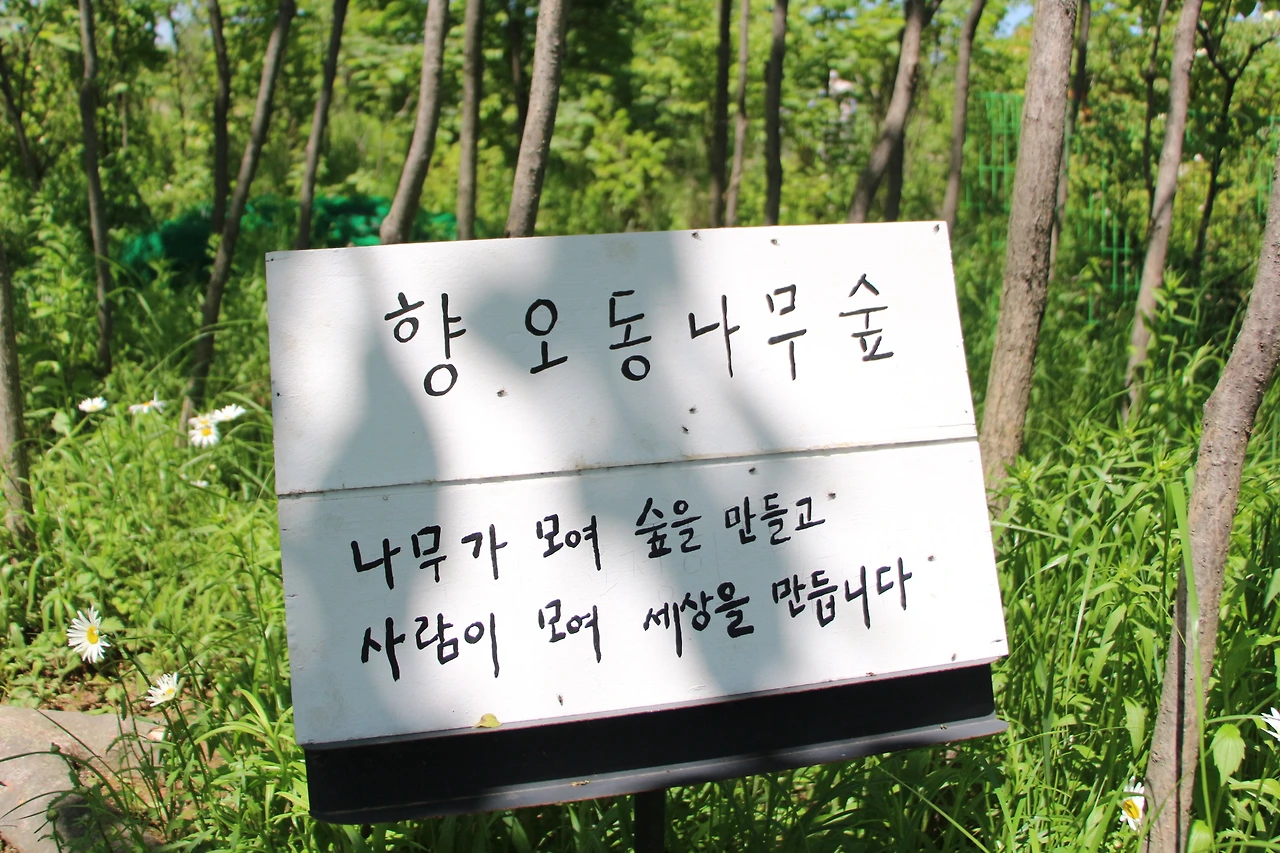 향 오동나무 숲
나무가 모여 숲을 만들고
사람이 모여 세상을 만듭니다